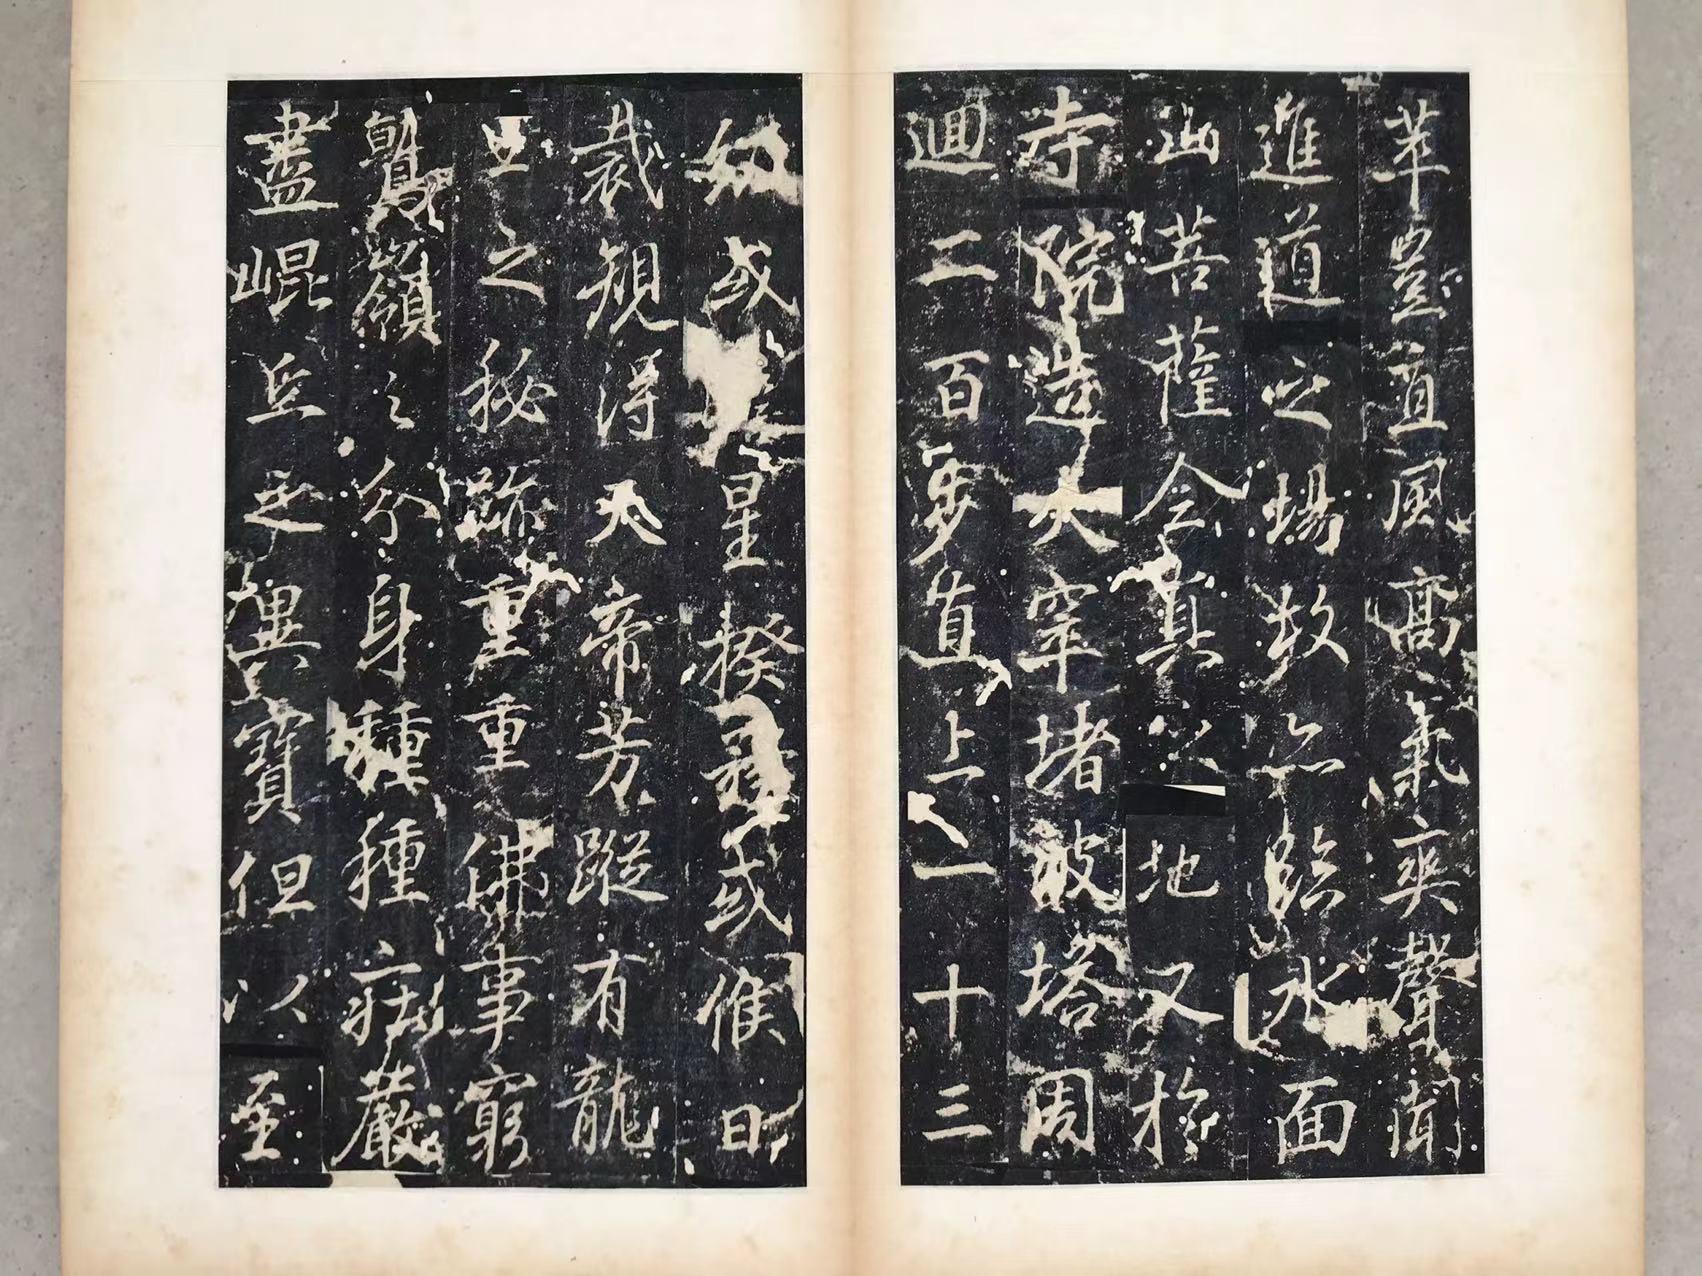 萃直風高氣爽聲聞
進道之場故亦臨水面
山菩薩全真之地又於
寺院造大窣堵波塔周
迴二百步直上一十三
級或星揆或候日
裁規得天帝芳蹤有龍
王之秘跡重重佛事窮
鷲嶺之分身種種莊嚴
盡崐丘之異寶但以至